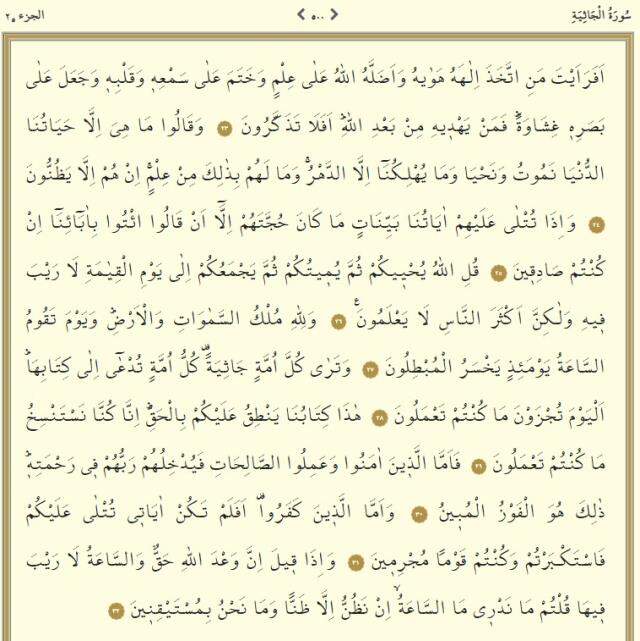 سُورَةُ الْجَاثِيَةِ ٥٠٠ الجزء ٢٥
اَفَرَاَيْتَ مَنِ اتَّخَذَ اِلٰهَهُ هَوٰيهُ وَاَضَلَّهُ اللّٰهُ عَلٰى عِلْمٍ وَخَتَمَ عَلٰى سَمْعِهٖ وَقَلْبِهٖ وَجَعَلَ عَلٰى
بَصَرِهٖ غِشَاوَةًۜ فَمَنْ يَهْدٖيهِ مِنْ بَعْدِ اللّٰهِۜ اَفَلَا تَذَكَّرُونَ ٢٣ وَقَالُوا مَا هِىَ اِلَّا حَيَاتُنَا
الدُّنْيَا نَمُوتُ وَنَحْيَا وَمَا يُهْلِكُنَٓا اِلَّا الدَّهْرُۚ وَمَا لَهُمْ بِذٰلِكَ مِنْ عِلْمٍۚ اِنْ هُمْ اِلَّا يَظُنُّونَ
٢٤ وَاِذَا تُتْلٰى عَلَيْهِمْ اٰيَاتُنَا بَيِّنَاتٍ مَا كَانَ حُجَّتَهُمْ اِلَّٓا اَنْ قَالُوا ائْتُوا بِاٰبَٓائِنَٓا اِنْ
كُنْتُمْ صَادِقٖينَ ٢٥ قُلِ اللّٰهُ يُحْيٖيكُمْ ثُمَّ يُمٖيتُكُمْ ثُمَّ يَجْمَعُكُمْ اِلٰى يَوْمِ الْقِيٰمَةِ لَا رَيْبَ
فٖيهِ وَلٰكِنَّ اَكْثَرَ النَّاسِ لَا يَعْلَمُونَ۟ ٢٦ وَلِلّٰهِ مُلْكُ السَّمٰوَاتِ وَالْاَرْضِۜ وَيَوْمَ تَقُومُ
السَّاعَةُ يَوْمَئِذٍ يَخْسَرُ الْمُبْطِلُونَ ٢٧ وَتَرٰى كُلَّ اُمَّةٍ جَاثِيَةً۠ كُلُّ اُمَّةٍ تُدْعٰٓى اِلٰى كِتَابِهَاۜ
اَلْيَوْمَ تُجْزَوْنَ مَا كُنْتُمْ تَعْمَلُونَ ٢٨ هٰذَا كِتَابُنَا يَنْطِقُ عَلَيْكُمْ بِالْحَقِّۜ اِنَّا كُنَّا نَسْتَنْسِخُ
مَا كُنْتُمْ تَعْمَلُونَ ٢٩ فَاَمَّا الَّذٖينَ اٰمَنُوا وَعَمِلُوا الصَّالِحَاتِ فَيُدْخِلُهُمْ رَبُّهُمْ فٖى رَحْمَتِهٖۜ
ذٰلِكَ هُوَ الْفَوْزُ الْمُبٖينُ ٣٠ وَاَمَّا الَّذٖينَ كَفَرُوا۠ اَفَلَمْ تَكُنْ اٰيَاتٖى تُتْلٰى عَلَيْكُمْ
فَاسْتَكْبَرْتُمْ وَكُنْتُمْ قَوْمًا مُجْرِمٖينَ ٣١ وَاِذَا قٖيلَ اِنَّ وَعْدَ اللّٰهِ حَقٌّ وَالسَّاعَةُ لَا رَيْبَ
فٖيهَا قُلْتُمْ مَا نَدْرٖى مَا السَّاعَةُۙ اِنْ نَظُنُّ اِلَّا ظَنًّا وَمَا نَحْنُ بِمُسْتَيْقِنٖينَ ٣٢